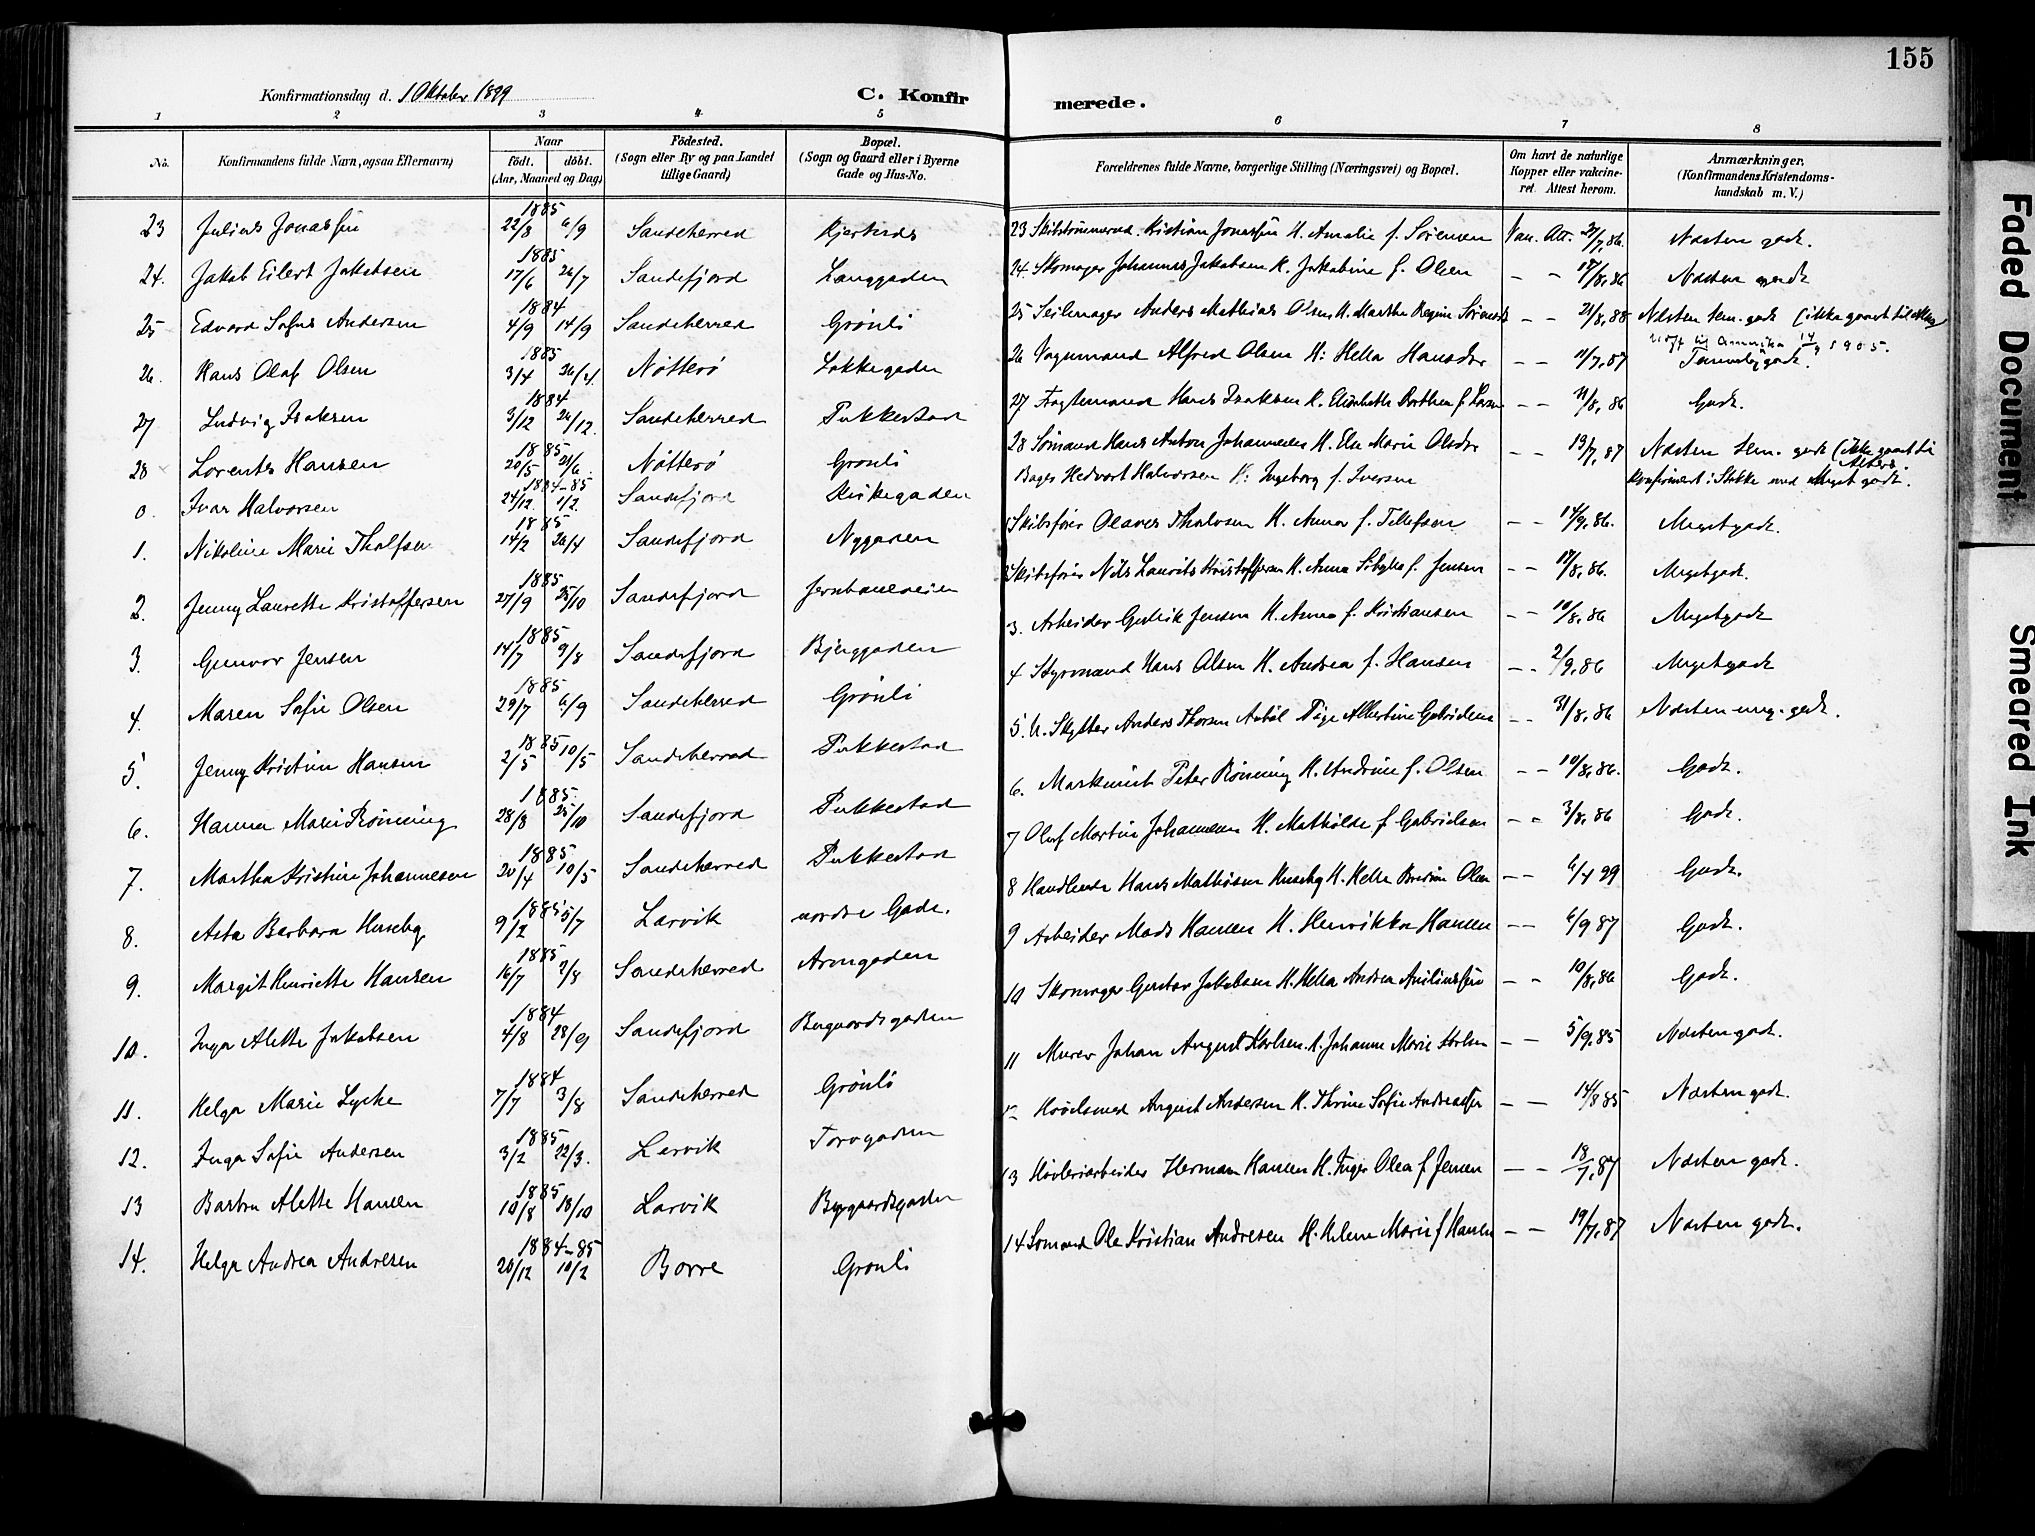 155
Konfirmationsdag d. 1 Oktober 1899
C. Konfirmerede.
1 2 3 4 5 6 7 8
No. Konfirmandens fulde Navn, ogsaa Efternavn) Naar födt. döbt. (Aar, Maaned og Dag) Födested. (Sogn eller By og paa Landet tillige Gaard) Bopæl. (Sogn og Gaard eller i Byerne Gade og Hus-No. Forældrenes fulde Navne, borgerlige Stilling (Næringsvei) og Bopæl. Om havt de naturlige Kopper eller vakcineret. Attest herom. Anmærkninger. (Konfirmandens Kristendomskundskab m. V.)
23 Julius Jonassen 1885 22/8 6/9 Sandeherred 23 Kristian Jonassen H. Amalie f. Sörensen Vac. Att. 21/7, 86. Næsten godt.
24. Jakob Eilert Jakobsen 1885 17/6 26/7 Sandefjord Langgaden 24. Skomager Johannes Jakobsen H. Jakobine f. Olsen – – 18/8, 86 Næsten godt
25 Edvard Sofus Andersen 1884 4/9 14/9 Sandeherred Grönli 25 Seilmager Anders Mathias Olsen H. Marthe Regine – – 21/8, 88 Næsten tem. godt
26. Hans Olaf Olsen 1885 3/4 26/4 Nötterö Lökkegaden 26 Vognmand Alfred Olsen H: Hella Hansdtr – – 11/7, 87 Temmelig godt. til Amerika 14/4 1905.
27 Ludvig Isaksen 1884 3/12 26/12. Sandeherred Pukkestad 27 Hans Isaksen H. Elisabeth Dorthea f. Larsen – – 31/8, 86 Godt.
28 Lorents Hansen 1885 20/5 21/6 Nötterö Grönli 28 Sömand Hans Anton Johannesen H. Else Marie Olsdtr – – 13/7, 87 Næsten tem. godt (ikke gaaet til Alters.
0. Ivar Halvorsen 1884–85 24/12 1/2 Sandefjord Kirkegaden Bager Hedvart Halvorsen H: Ingeborg f. Iversen Konfirmert i Stokke med Meget godt.
1. Nikoline Marie Tholfsen 1885 14/2 26/4 Sandefjord Nygaden 1 Skibsförer Olaves Tholvsen H. Anna f. Tellefsen – – 14/9, 86. Megetgodt.
2. Jenny Laurette Kristoffersen 1885 27/9 25/10 Sandefjord Jernbaneveien 2 Skibsförer Nils Laurits Kristoffersen H. Anna f. Jensen – – 17/8, 86. Megetgodt.
3. Gunvor Jensen 1885 14/7 9/8 Sandefjord Bjerggaden 3. Arbeider Gulik Jensen H. Anna f. Kristiansen – – 10/8, 86 Megetgodt
4. Maren Sofie Olsen 1885 29/7 6/9 Sandeherred Grönli 4 Styrmand Hans Olsen H. Andrea f. Hansen – – 2/9, 86 Megetgodt
5. Jenny Kristine Hansen 1885 2/5 10/5 Sandeherred Pukkestad 5. U. Skytter Anders Thorsen Pige Albertine Gabrielsen – – 31/8, 86 Næsten meg. godt.
6. Hanna Marie Rönning 1885. 28/8 25/10 Sandefjord Pukkestad 6. Maskinist Peter Rönning H. Andrine f. Olsen – – 10/8, 86. Godt.
7. Martha Kristine Johannesen 1885 20/4 10/5 Sandeherred Pukkestad 7 Oluf Martin Johannesen H. Mathilde f Gabrielsen – – 3/8, 86 Godt.
8. Asta Barbara Huseby 1885 9/2 5/7 Larvik nordre Gade. 8 Hans Mathisen Huseby H. Olsen – – 6/4 99 Godt.
9. Margit Henriette Hansen 1885 16/7 2/8 Sandeherred 9 Arbeider Mads Hansen H. Henrikka Hansen – – 6/9 87 Godt.
10. Inga Alette Jakobsen 1884 4/8 28/9 Sandefjord Bugaardsgaden 10 Skomager Gustav Jakobsen H. Hella Andrea – – 10/8, 86 Godt.
11. Helga Marie Lycke 1884 7/7 3/8 Sandeherred Grönli 11 Murer Johan August Karlsen. H. Johanne Marie Karlsen – – 5/9, 85 Næsten godt.
12. Inga Sofie Andersen 1885 3/2 22/3. Larvik Torvgaden August Andersen H. Thrine Sofie – – 14/8 85 Næsten godt.
13 Barbra Alette Hansen 1885 10/8 18/10 Larvik Bugaardsgaden 13 Hövleriarbeider Herman Hansen H. Inger Olea f Jensen – – 18/7, 87 Næsten godt.
14. Helga Andrea Andresen 1884–85 20/12 10/2 Borre Grönli 14 Sömand Ole Kristian Andresen H. Helene Marie f Hansen – – 19/7, 87 Næsten godt.
Faded Document
Smeared Ink